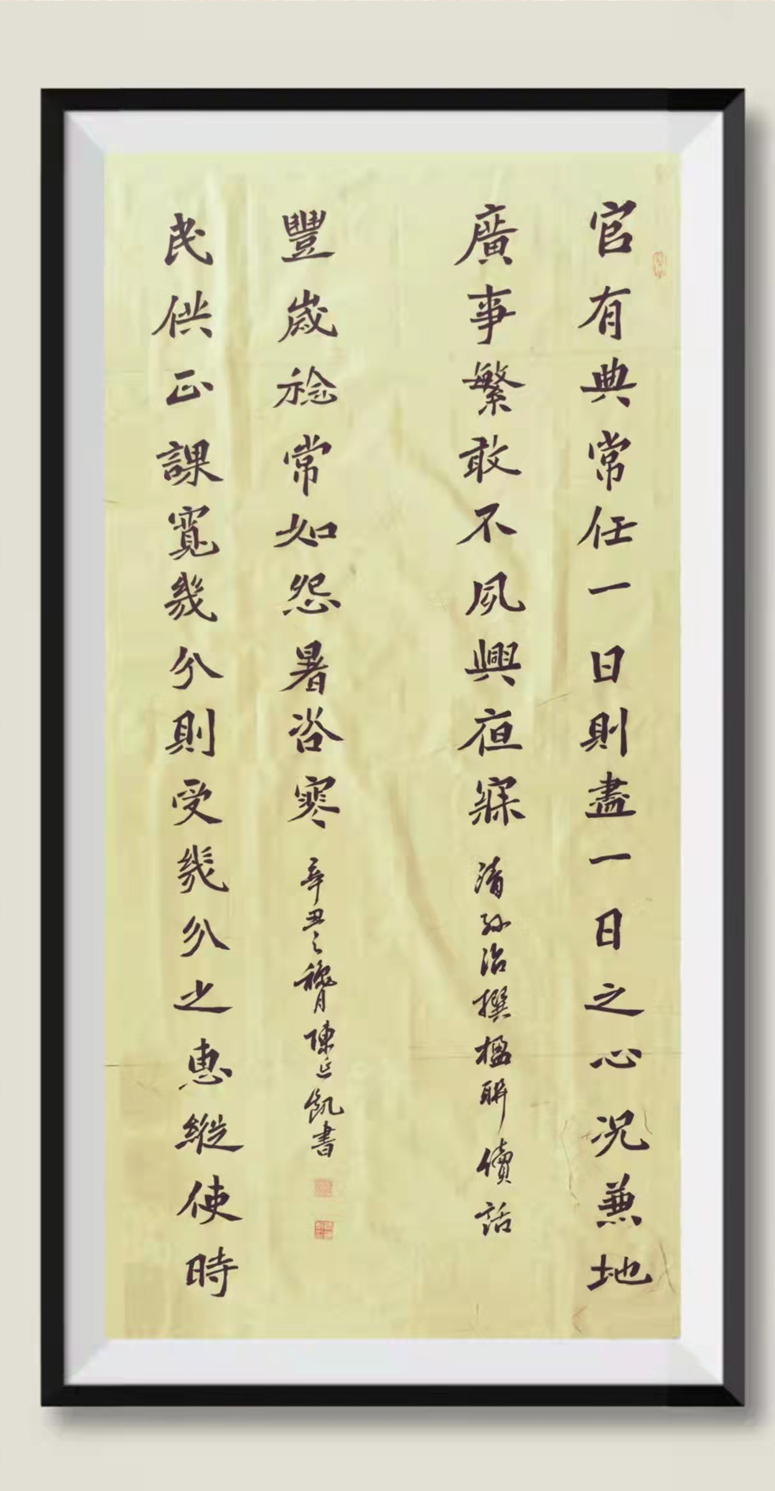 官有典常任一日則盡一日之心況兼地
廣事繁敢不夙興夜寐 清孫治撰楹聯續話
民供正課寬幾分則受幾分之惠縱使時
豐歲稔常如怨暑咨寒 辛丑之穐月陳延凱書